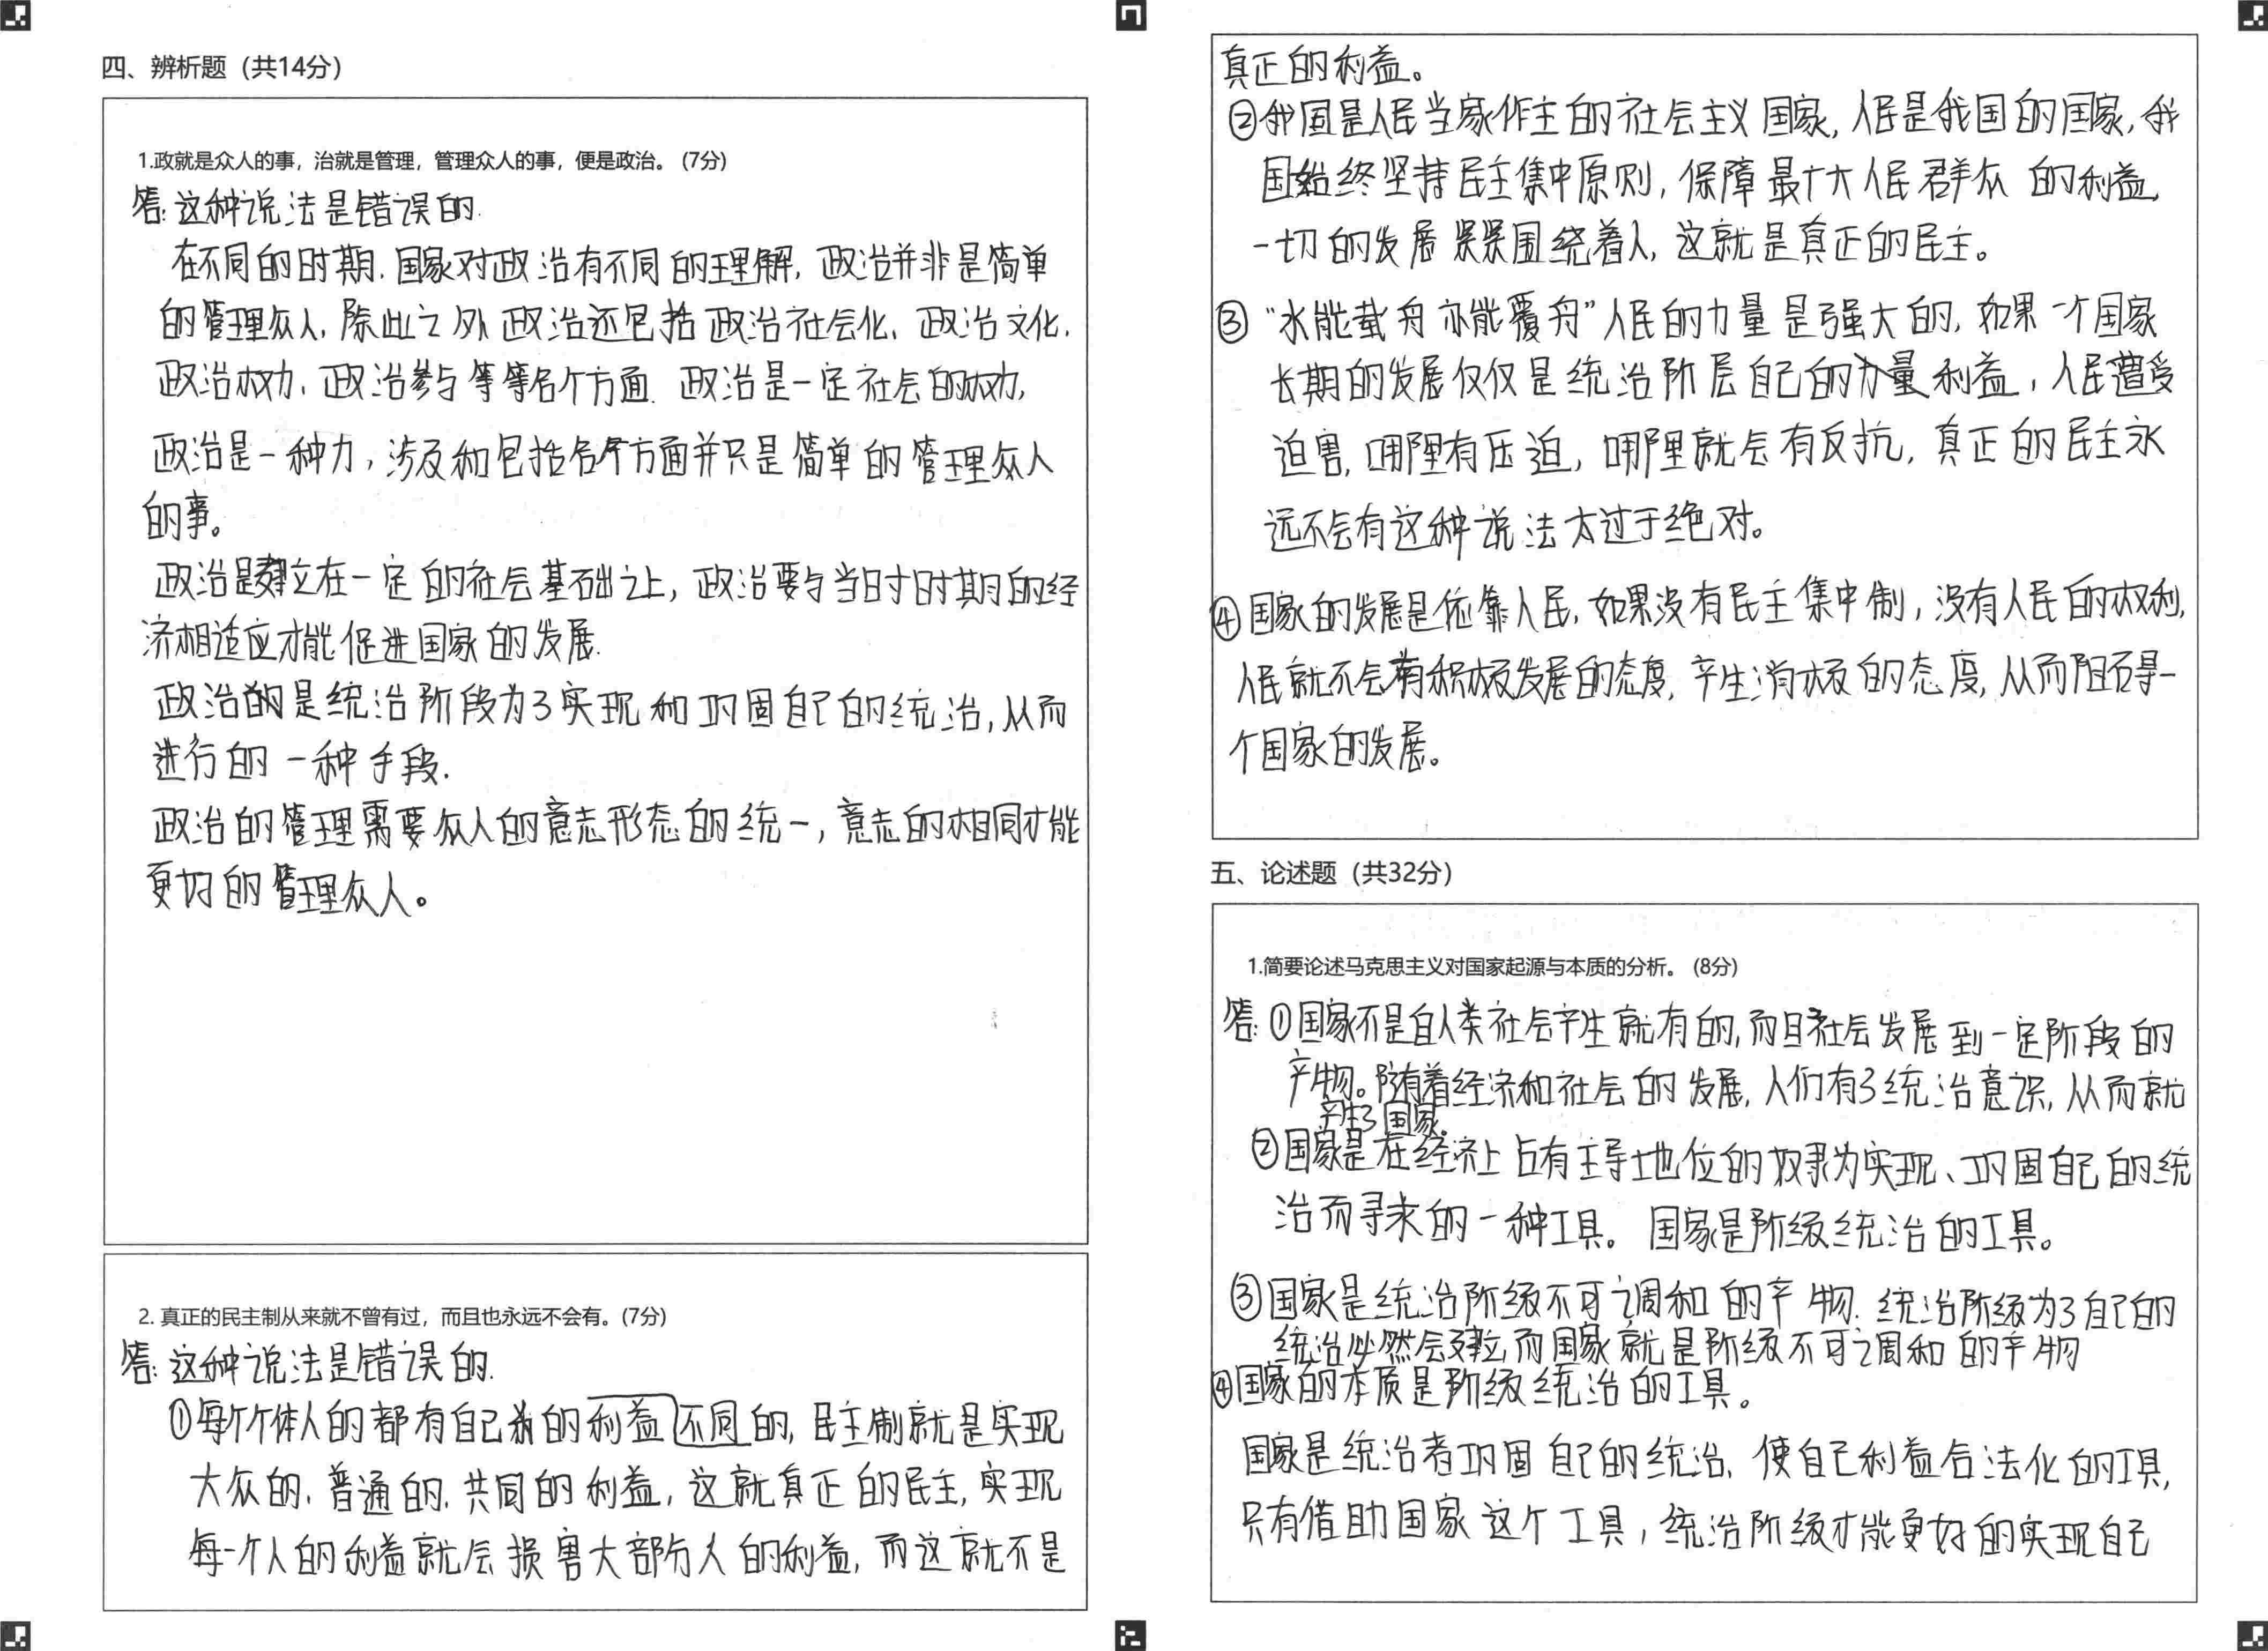 四、辨析题（共14分）
1.政就是众人的事，治就是管理，管理众人的事，便是政治。(7分)
答:这种说法是错误的.
在不同的时期.国家对政治有不同的理解,政治并非是简单
的管理众人,除此之外政治还包括政治社会化、政治文化.
政治权力.政治参与等等各个方面.政治是一定社会的权力,
政治是一种力,涉及和包括各个方面并只是简单的管理众人
的事。
政治是建立在一定的社会基础之上,政治要与当时时期的经
济相适应才能促进国家的发展.
政治的是统治阶段为了实现和巩固自己的统治,从而
进行的一种手段.
政治的管理需要众人的意志形态的统一,意志的相同才能
更好的管理众人。
2. 真正的民主制从来就不曾有过，而且也永远不会有。(7分)
答:这种说法是错误的.
①每个个体人的都有自己的利益不同的,民主制就是实现
大众的.普通的.共同的利益,这就真正的民主,实现
每一个人的利益就会损害大部分人的利益,而这就不是
真正的利益。
②我国是人民当家作主的社会主义国家,人民是我国的国家,我
国始终坚持民主集中原则,保障最广大人民群众的利益,
一切的发展紧紧围绕着人,这就是真正的民主。
③“水能载舟亦能覆舟”人民的力量是强大的,如果一个国家
长期的发展仅仅是统治阶层自己的利益,人民遭受
迫害,哪里有压迫,哪里就会有反抗,真正的民主永
远不会有这种说法太过于绝对。
④国家的发展是依靠人民,如果没有民主集中制,没有人民的权利,
人民就不会有积极发展的态度,产生消极的态度,从而阻碍一
个国家的发展。
五、论述题（共32分）
1.简要论述马克思主义对国家起源与本质的分析。(8分)
答:①国家不是自人类社会产生就有的,而且社会发展到一定阶段的
产物。随着经济和社会的发展,人们有了统治意识,从而就
产生了国家。
②国家是在经济上占有主导地位的奴隶为实现、巩固自己的统
治而寻求的一种工具。国家是阶级统治的工具。
③国家是统治阶级不可调和的产物.统治阶级为了自己的
统治必然会建立,而国家就是阶级不可调和的产物
④国家的本质是阶级统治的工具。
国家是统治者巩固自己的统治,使自己利益合法化的工具,
只有借助国家这个工具,统治阶级才能更好的实现自己